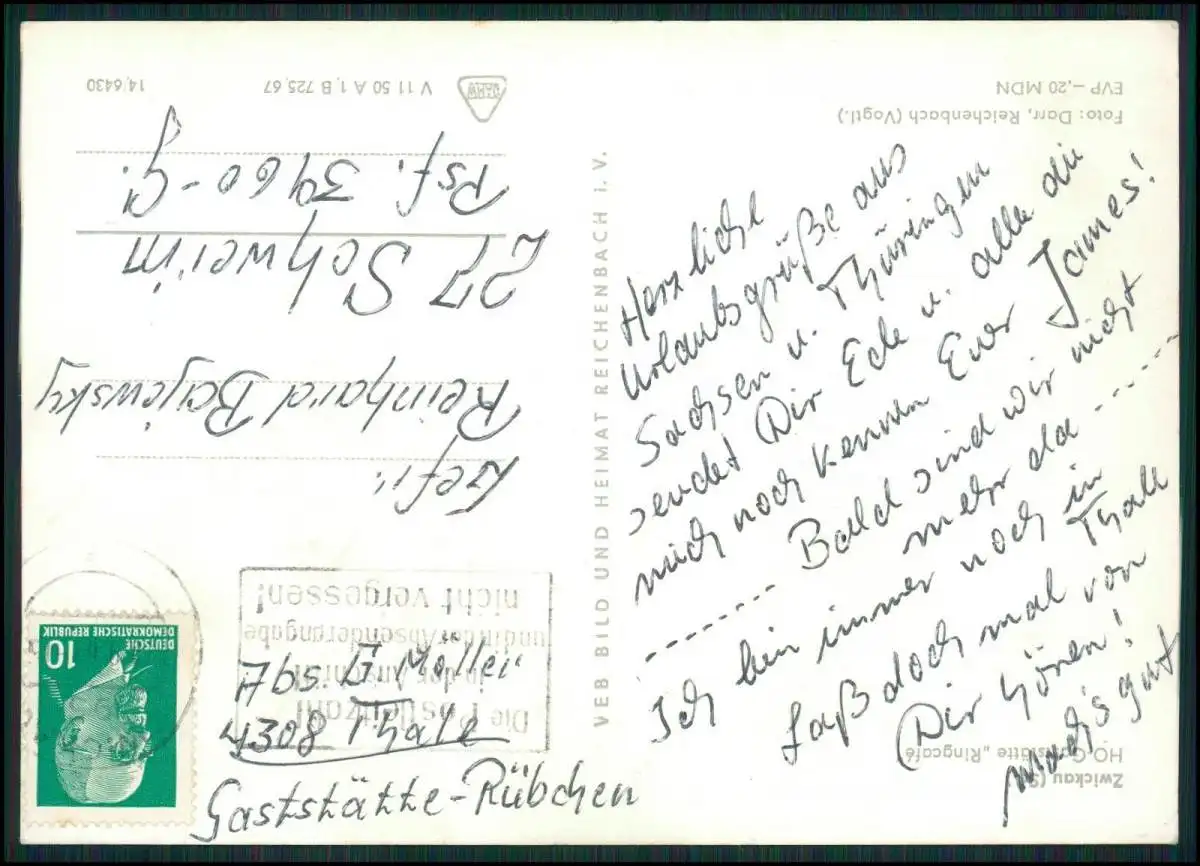 Zwickau
HO-Gaststätte „Ringcafé"
Herzliche
Urlaubsgrüße aus
Sachsen u. Thüringen
sendet Dir Ede u. alle die
mich noch kennen Euer James!
Bald sind wir nicht
mehr da
Ich bin immer noch in
Thale
Laß doch mal von
Dir hören!
mach's gut
Foto: Darr, Reichenbach (Vogtl.)
EVP –,20 MDN
VEB BILD UND HEIMAT REICHENBACH I. V.
V 11 50 A 1, B 725/67
14/6430
DEUTSCHE
DEMOKRATISCHE REPUBLIK
10
Die Postleitzahl
in der Anschrift
und in der Absenderangabe
nicht vergessen!
Abs.
4308 Thale
Gaststätte-Rübchen
Gefr.
Reinhard Bajewsky
27 Schwerin
Psf. 3960-G.